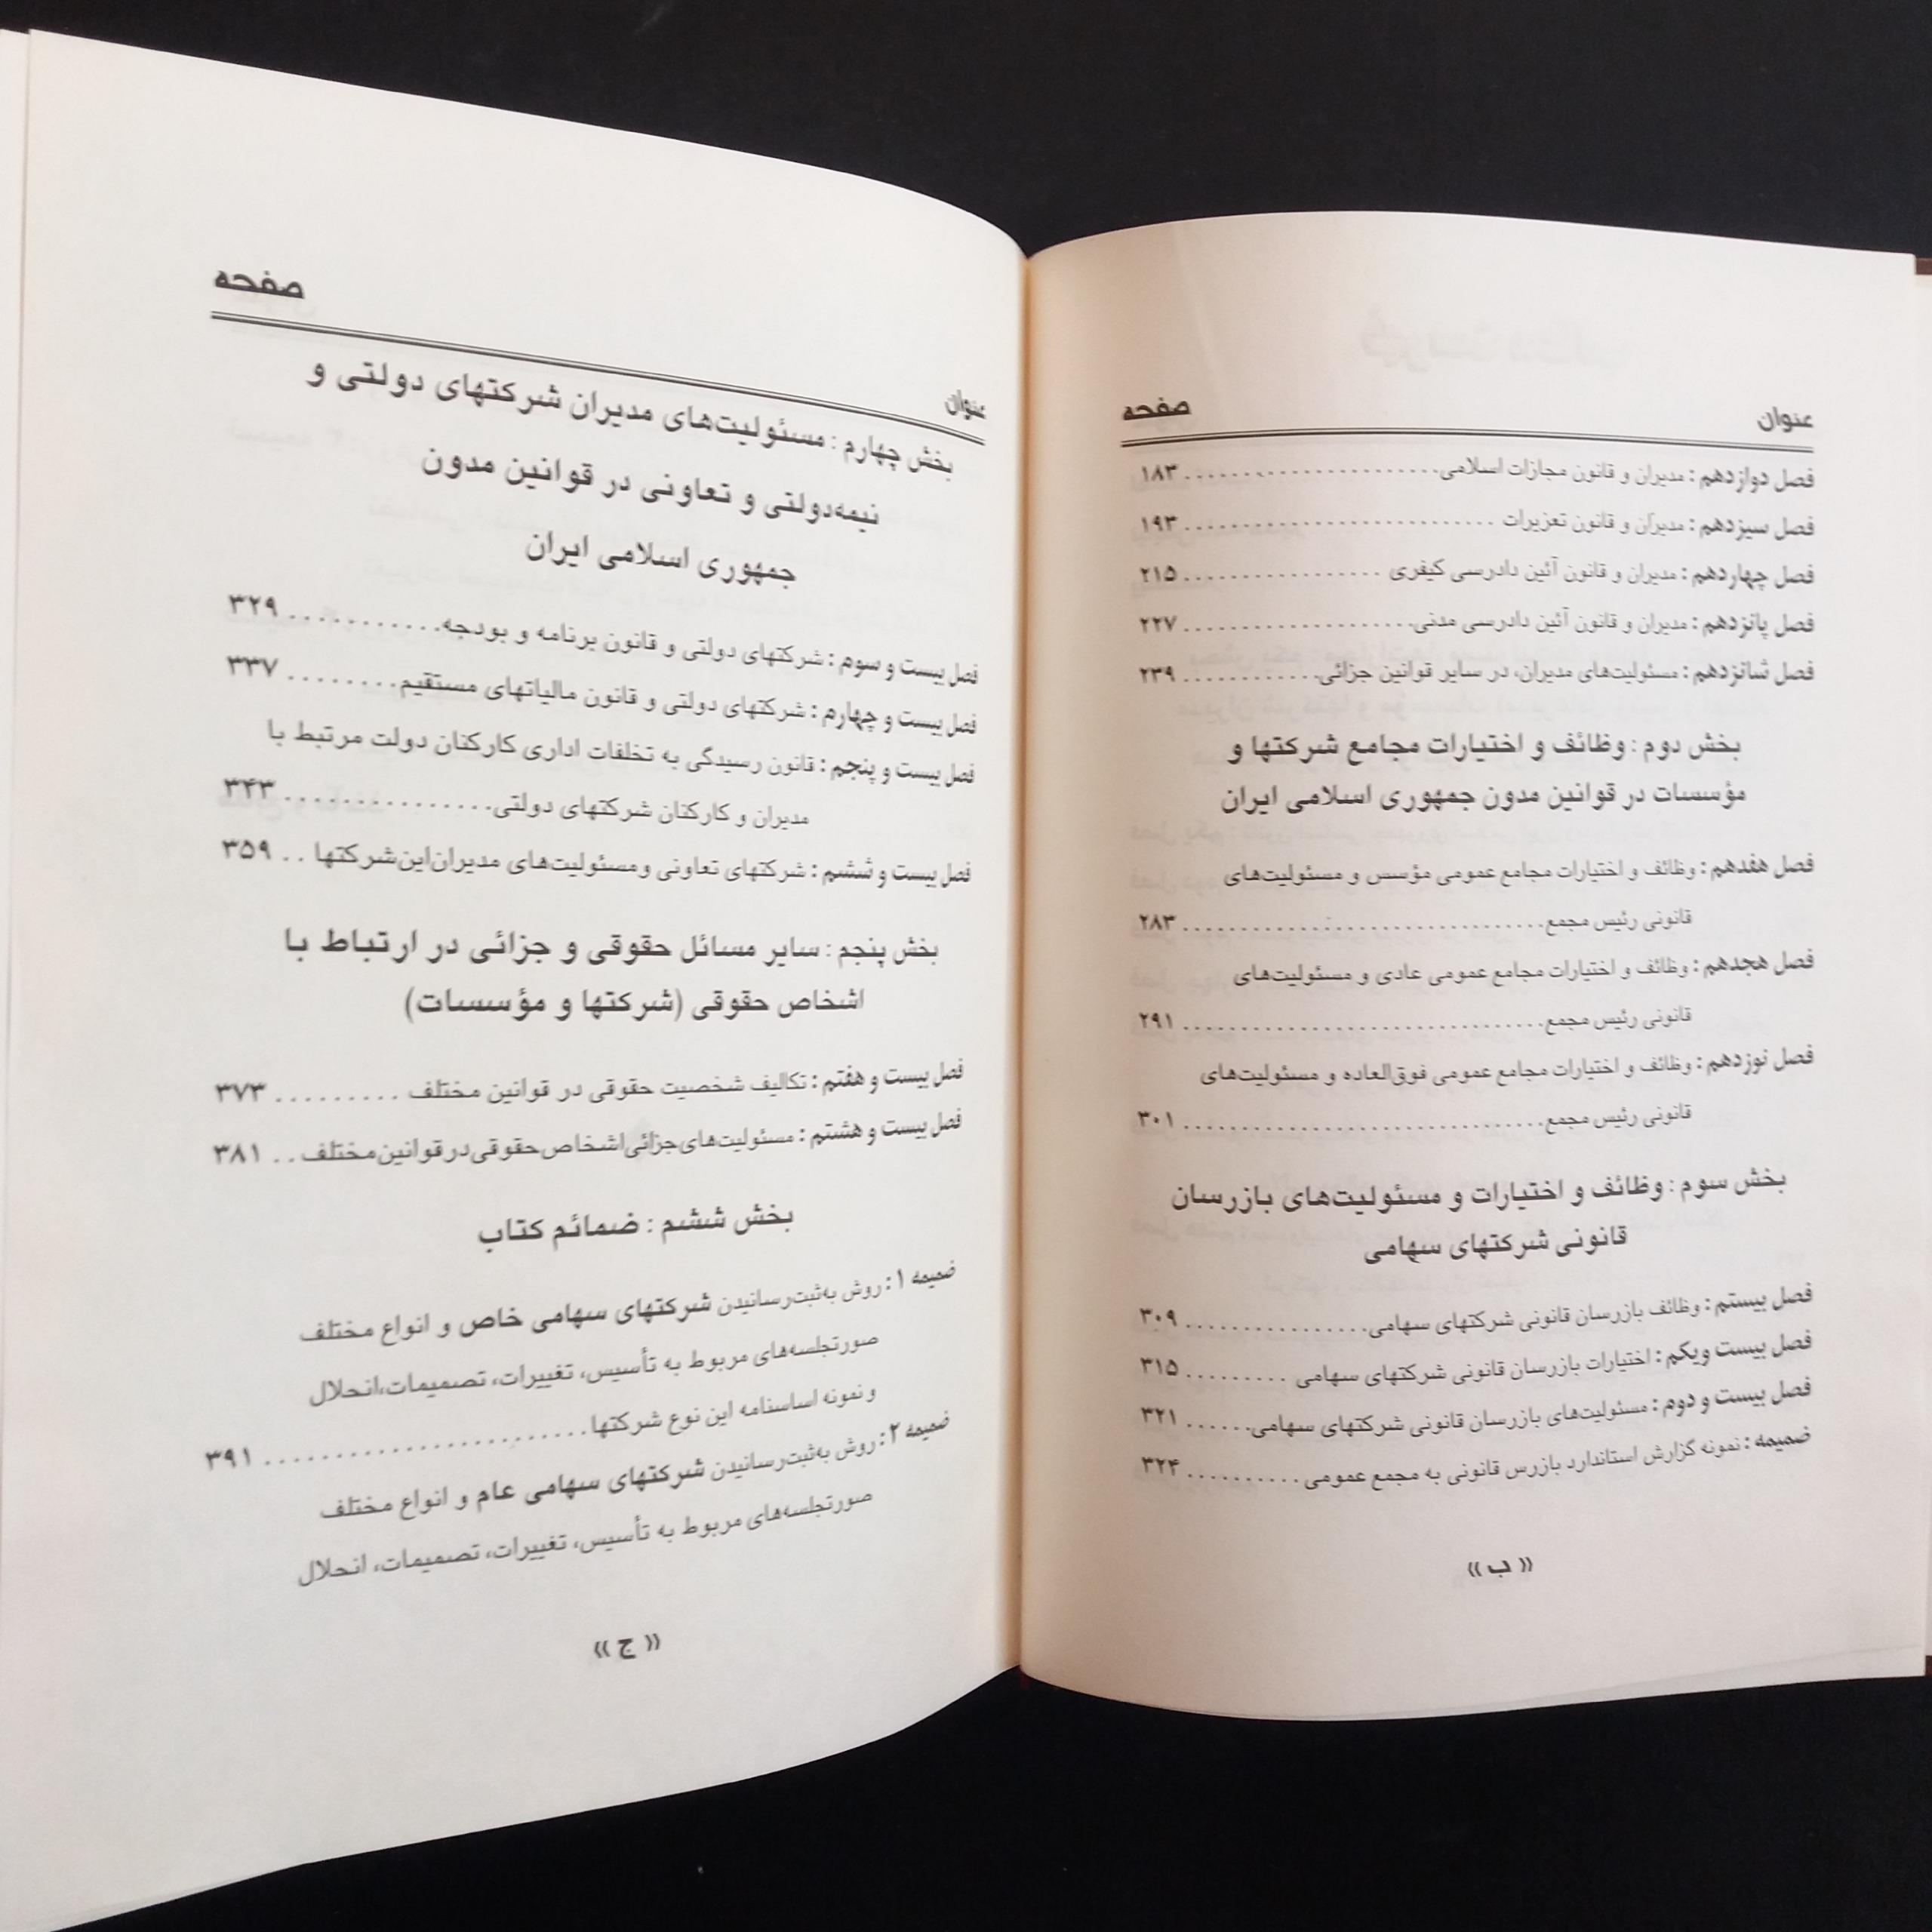 عنوان صفحه
فصل دوازدهم : مدیران و قانون مجازات اسلامی........................ ۱۸۳
فصل سیزدهم : مدیران و قانون تعزیرات ........................... ۱۹۳
فصل چهاردهم : مدیران و قانون آئین دادرسی کیفری ................. ۲۱۵
فصل پانزدهم : مدیران و قانون آئین دادرسی مدنی.................... ۲۲۷
فصل شانزدهم : مسئولیت‌های مدیران، در سایر قوانین جزائی............ ۲۳۹
بخش دوم : وظائف و اختیارات مجامع شرکتها و
مؤسسات در قوانین مدون جمهوری اسلامی ایران
فصل هفدهم : وظائف و اختیارات مجامع عمومی مؤسس و مسئولیت‌های
قانونی رئیس مجمع............................... ۲۸۳
فصل هجدهم : وظائف و اختیارات مجامع عمومی عادی و مسئولیت‌های
قانونی رئیس مجمع............................... ۲۹۱
فصل نوزدهم : وظائف و اختیارات مجامع عمومی فوق‌العاده و مسئولیت‌های
قانونی رئیس مجمع............................... ۳۰۱
بخش سوم : وظائف و اختیارات و مسئولیت‌های بازرسان
قانونی شرکتهای سهامی
فصل بیستم : وظائف بازرسان قانونی شرکتهای سهامی................ ۳۰۹
فصل بیست ویکم : اختیارات بازرسان قانونی شرکتهای سهامی ......... ۳۱۵
فصل بیست و دوم : مسئولیت‌های بازرسان قانونی شرکتهای سهامی...... ۳۲۱
ضمیمه : نمونه گزارش استاندارد بازرس قانونی به مجمع عمومی .......... ۳۲۴
« ب »
عنوان صفحه
بخش چهارم : مسئولیت‌های مدیران شرکتهای دولتی و
نیمه‌دولتی و تعاونی در قوانین مدون
جمهوری اسلامی ایران
فصل بیست و سوم : شرکتهای دولتی و قانون برنامه و بودجه........... ۳۲۹
فصل بیست و چهارم : شرکتهای دولتی و قانون مالیاتهای مستقیم........ ۳۳۷
فصل بیست و پنجم : قانون رسیدگی به تخلفات اداری کارکنان دولت مرتبط با
مدیران و کارکنان شرکتهای دولتی............... ۳۴۳
فصل بیست و ششم : شرکتهای تعاونی ومسئولیت‌های مدیران‌این‌شرکتها .. ۳۵۹
بخش پنجم : سایر مسائل حقوقی و جزائی در ارتباط با
اشخاص حقوقی (شرکتها و مؤسسات)
فصل بیست و هفتم : تکالیف شخصیت حقوقی در قوانین مختلف ......... ۳۷۳
فصل بیست و هشتم : مسئولیت‌های‌جزائی‌اشخاص‌حقوقی‌در‌قوانین‌مختلف .. ۳۸۱
بخش ششم : ضمائم کتاب
ضمیمه ۱ : روش به‌ثبت‌رسانیدن شرکتهای سهامی خاص و انواع مختلف
صورتجلسه‌های مربوط به تأسیس، تغییرات، تصمیمات،انحلال
و نمونه اساسنامه این نوع شرکتها........................ ۳۹۱
ضمیمه ۲ : روش به‌ثبت‌رسانیدن شرکتهای سهامی عام و انواع مختلف
صورتجلسه‌های مربوط به تأسیس، تغییرات، تصمیمات، انحلال
« ج »